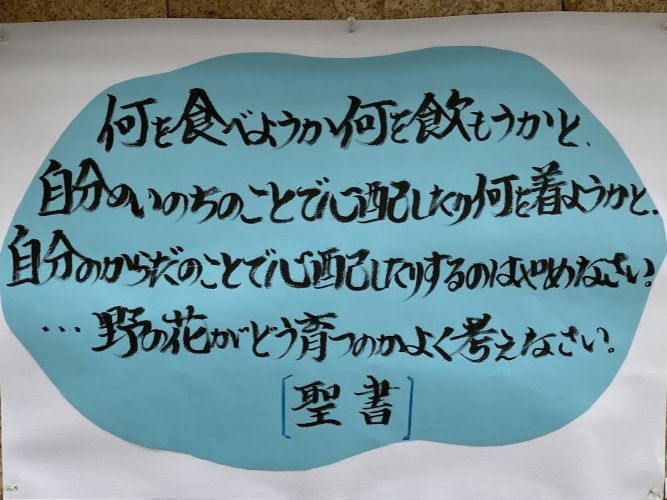 何を食べようか何を飲もうかと、
自分のいのちのことで心配したり何を着ようかと、
自分のからだのことで心配したりするのはやめなさい。
…野の花がどう育つのかよく考えなさい。
[聖書]